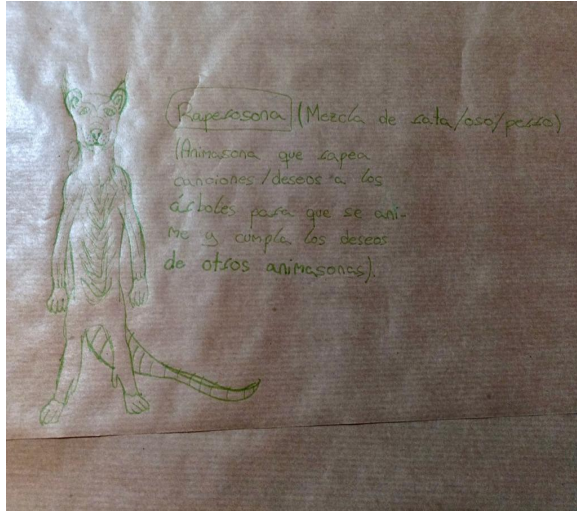 Raperosona (Mezcla de rata/oso/perro)
(Animasona que rapea
canciones/deseos a los
árboles para que se ani-
me y cumpla los deseos
de otros animasonas).